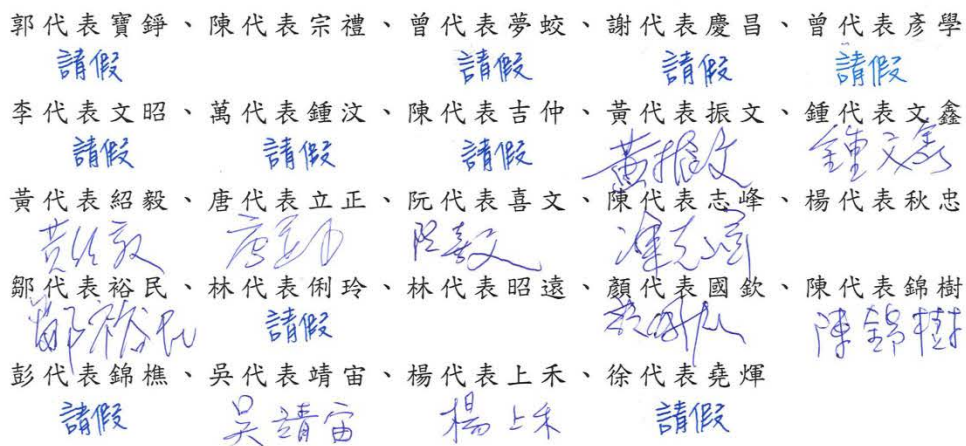 郭代表寶錚、陳代表宗禮、曾代表夢蛟、謝代表慶昌、曾代表彥學
請假 請假 請假 請假
李代表文昭、萬代表鍾汶、陳代表吉仲、黃代表振文、鍾代表文鑫
請假 請假 請假 黃振文 鍾文鑫
黃代表紹毅、唐代表立正、阮代表喜文、陳代表志峰、楊代表秋忠
黃紹毅 唐立正 阮喜文 陳志峰
鄒代表裕民、林代表俐玲、林代表昭遠、顏代表國欽、陳代表錦樹
鄒裕民 請假 顏國欽 陳錦樹
彭代表錦樵、吳代表靖宙、楊代表上禾、徐代表堯煇
請假 吳靖宙 楊上禾 請假